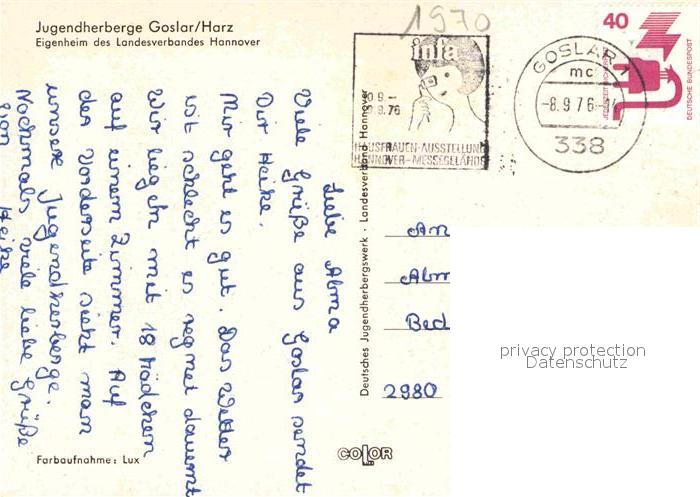 Jugendherberge Goslar/Harz
Eigenheim des Landesverbandes Hannover
1970
infa
9.76
HAUSFRAUEN-AUSSTELLUNG
HANNOVER-MESSEGELÄNDE
GOSLAR 1
mc
-8.9.76
338
40
JEDERZEIT SICHERHEIT
DEUTSCHE BUNDESPOST
Liebe
Viele Grüße aus Goslar sendet
Dir Heike.
Mir geht es gut. Das Wetter
ist schlecht es regnet dauernt
Wir liegen mit 18 Mädchen
auf einem Zimmer. Auf
der Vorderseite sieht man
unsere Jugendherberge.
Nochmals viele liebe Grüße
von Heike
Deutsches Jugendherbergswerk · Landesverband Hannover
An
Bed
2980
privacy protection
Datenschutz
Farbaufnahme: Lux
COLOR